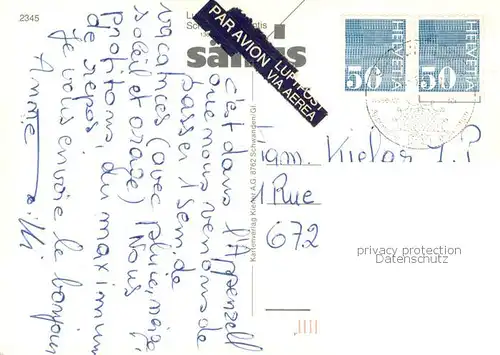 2345
säntis
PAR AVION
LUFTPOST
VIA AEREA
HELVETIA
50
HELVETIA
50
c'est dans l'Appenzell
que nous venons de
passer 1 sem. de
vacances (avec pluie, neige,
soleil et orage) Nous
profitons du maximum
de repos.
Je vous envoie le bonjour
Kartenverlag Kiefer A.G. 8762 Schwanden/Gl.
Fam. Kiefer J. P.
1 Rue
672
privacy protection
Datenschutz